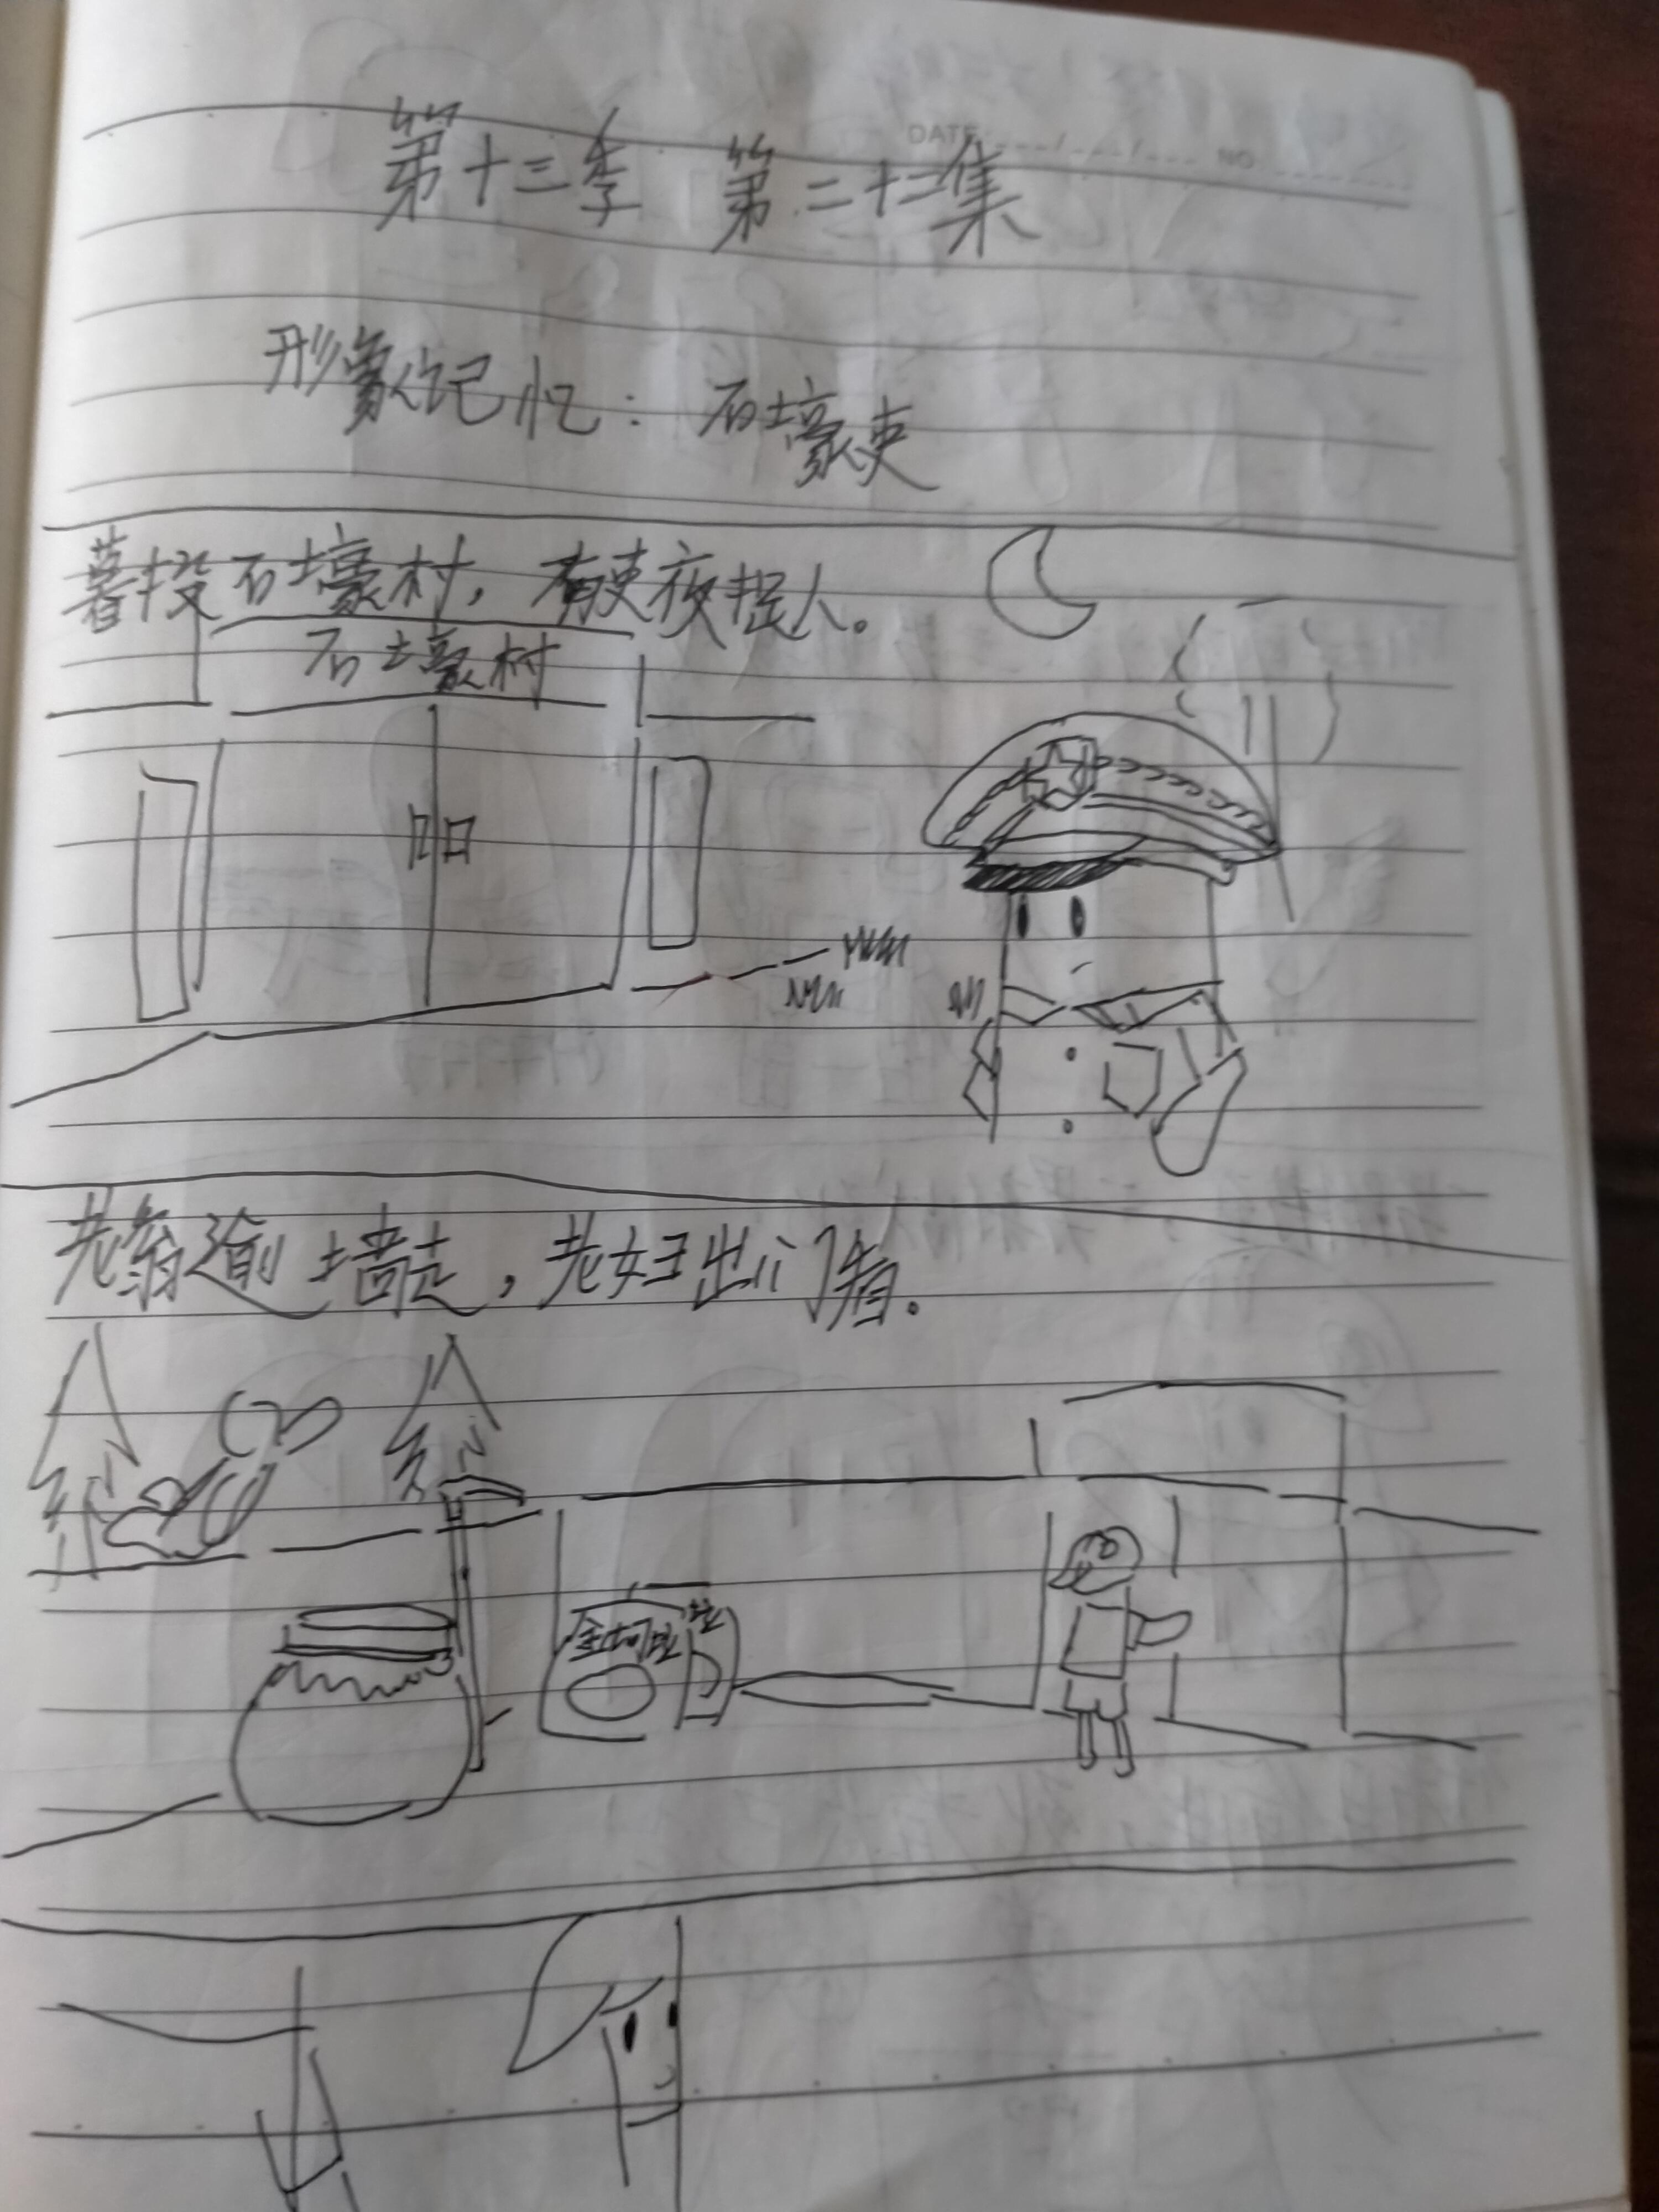 DATE NO
第十三季 第二十二集
形象记忆：石壕吏
暮投石壕村，有吏夜捉人。
石壕村
老翁逾墙走，老妇出门看。